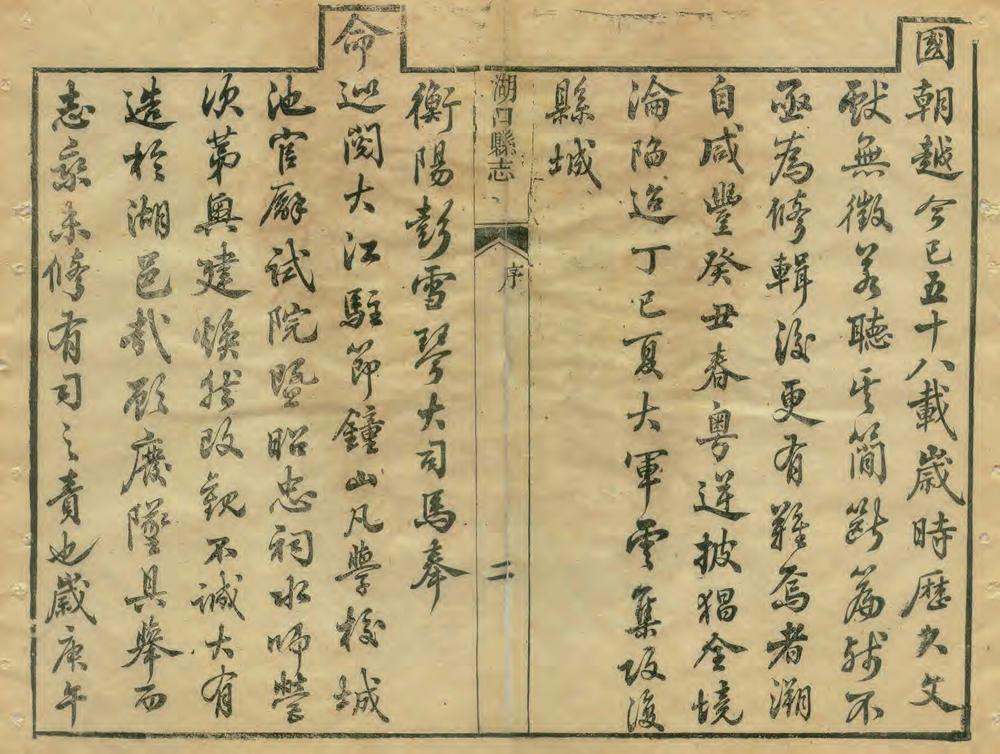 國朝越今已五十八載歲時歷久文
獻無徵若聽其簡斷篇殘不
亟為修輯後更有難焉者溯
自咸豐癸丑春粵逆披猖全境
淪陷迨丁巳夏大軍雲集攻復
縣城
湖口縣志 序 二
衡陽彭雪琴大司馬奉
命巡閱大江駐節鐘山凡學校城
池官廨試院暨昭忠祠水師營
次第興建煥然改觀不誠大有
造於湖邑哉顧廢墜具舉而
志乘未修有司之責也歲庚午